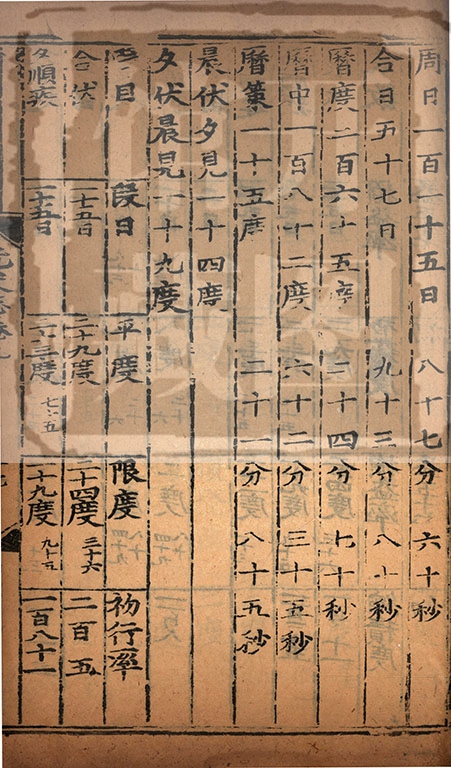 周日一百一十五日 八十七分 六十秒
合日五十七日 九十三分 八十秒
曆度三百六十五度 二十四分 七十秒
曆中一百八十二度 六十二分 三十五秒
曆策一十五度 二十一分 八十五秒
晨伏夕見一十四度
夕伏晨見一十九度
段目 段日 平度 限度 初行率
合伏 度 二十四度 三十六 二百五
夕順疾 一十五日 度 一十九度 一百八十一